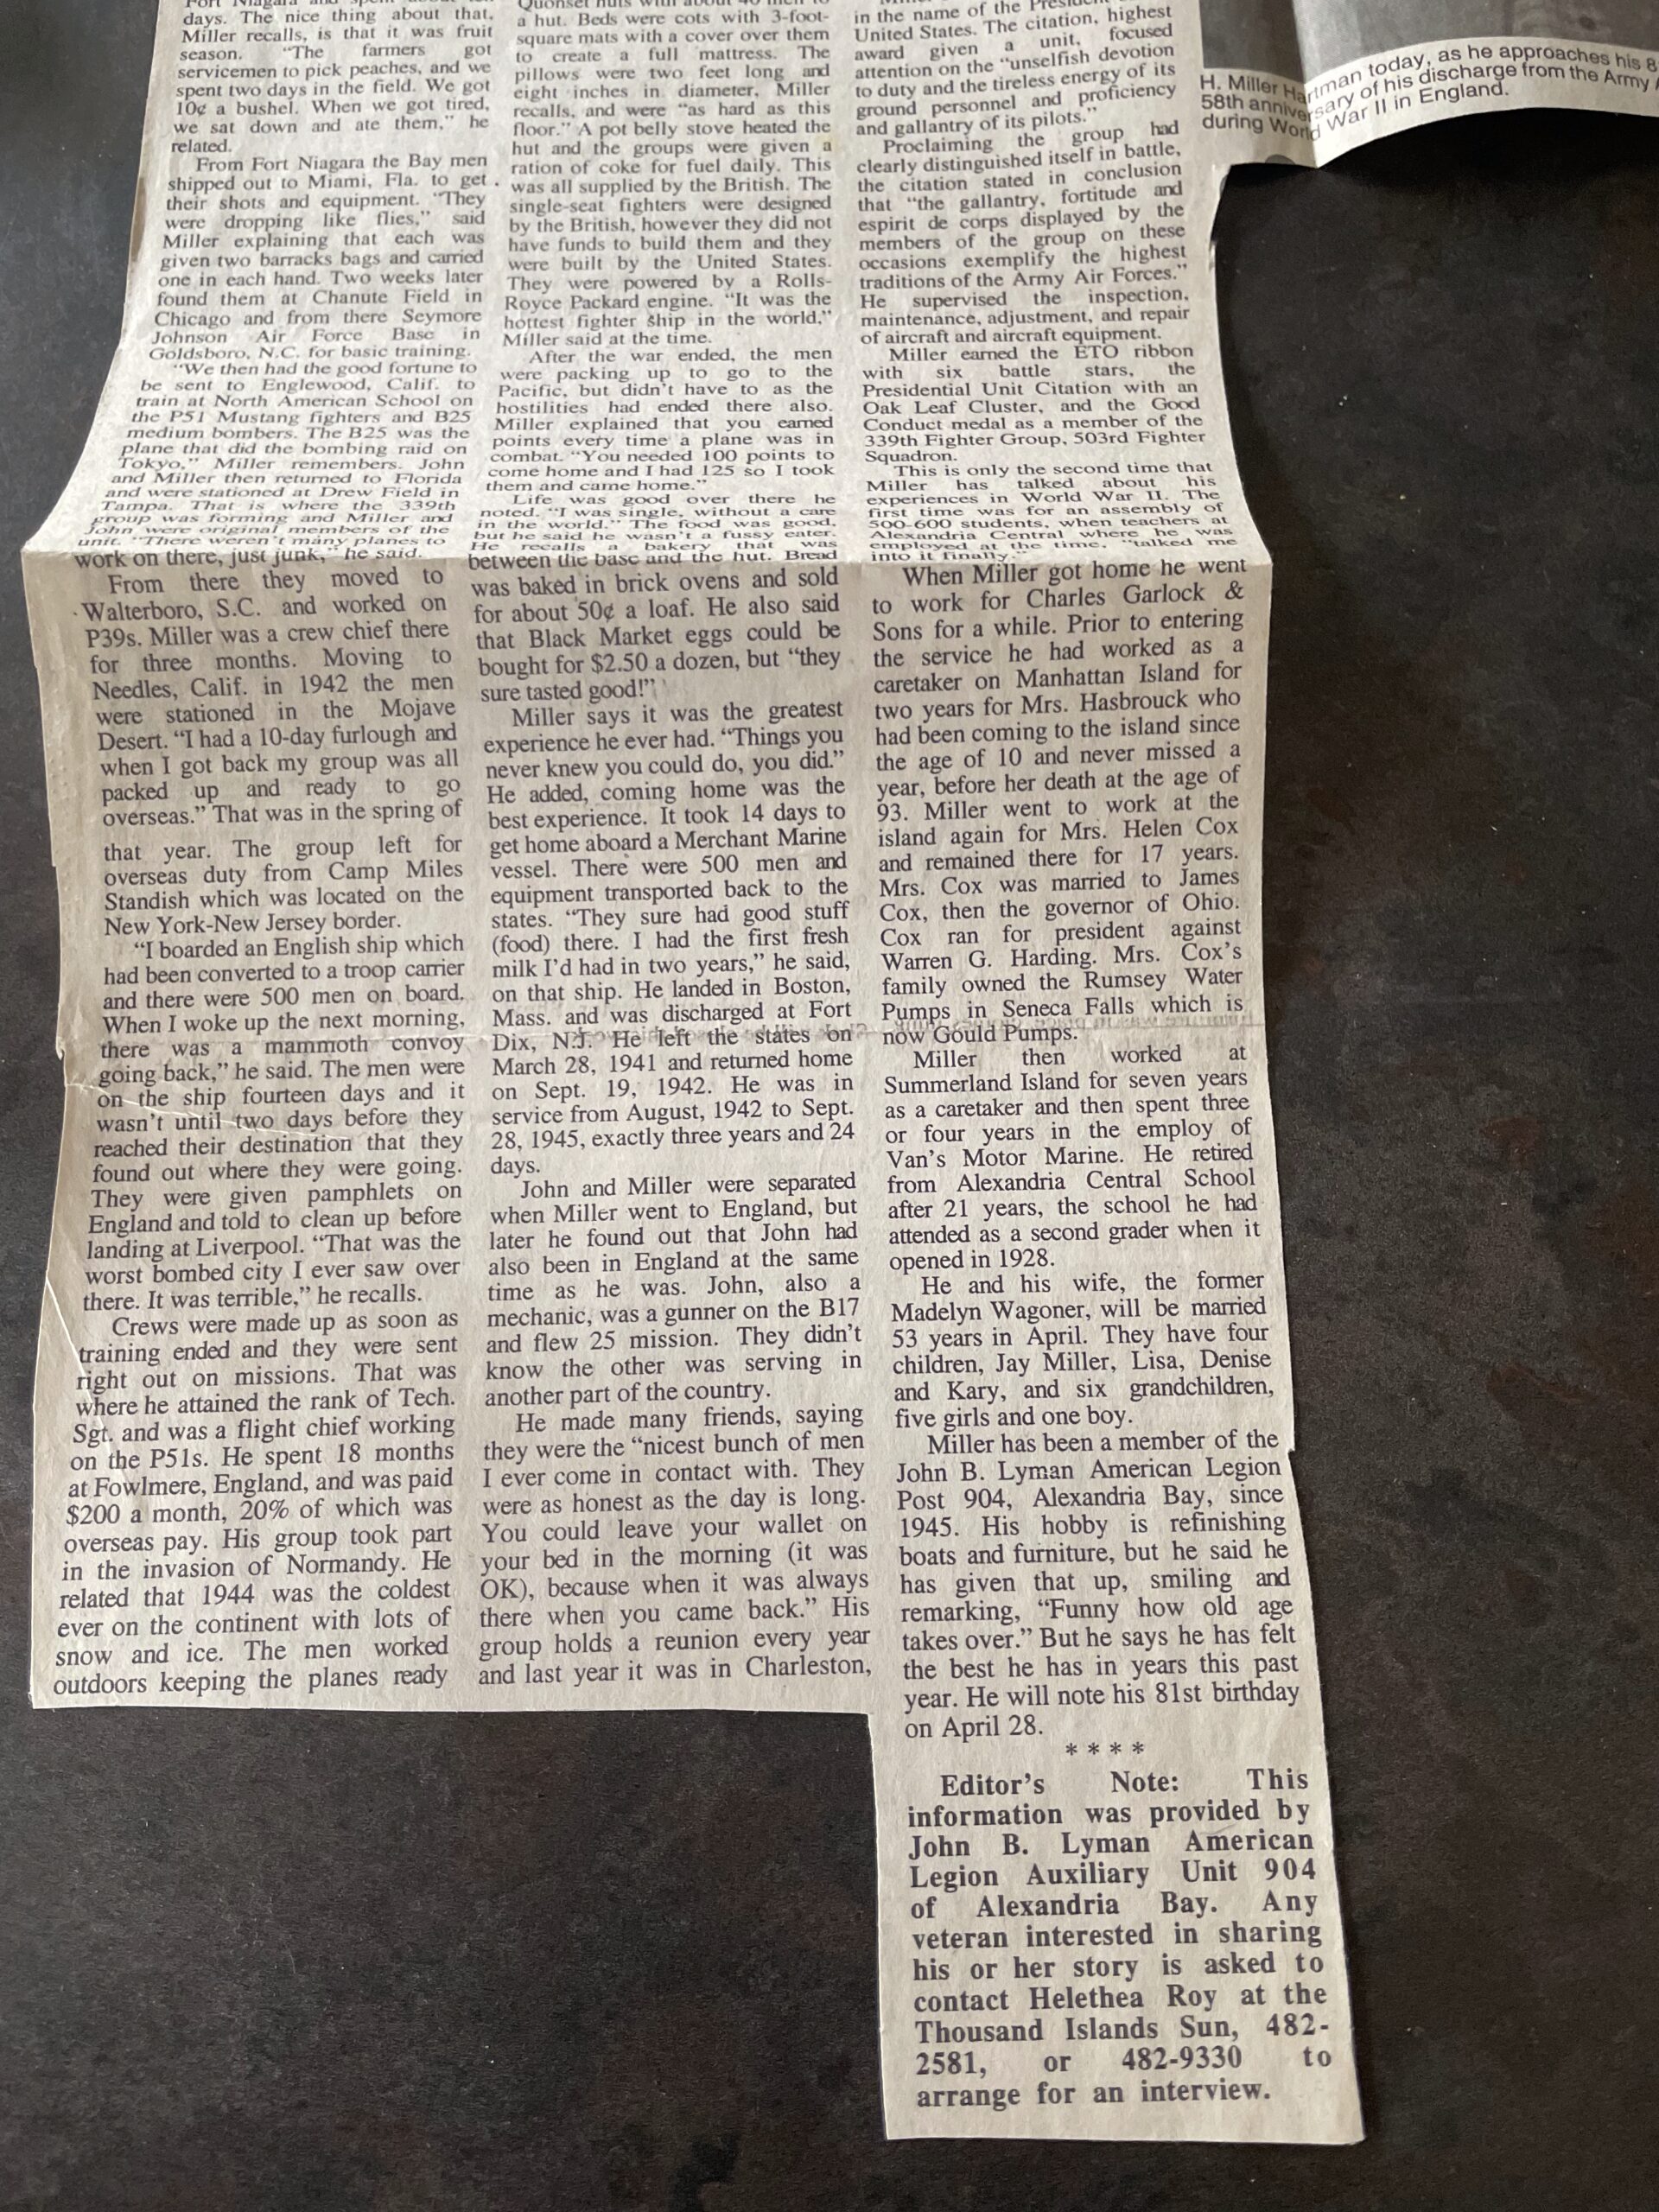 Fort Niagara and spent about ten
days. The nice thing about that,
Miller recalls, is that it was fruit
season. "The farmers got
servicemen to pick peaches, and we
spent two days in the field. We got
10¢ a bushel. When we got tired,
we sat down and ate them," he
related.
From Fort Niagara the Bay men
shipped out to Miami, Fla. to get
their shots and equipment. "They
were dropping like flies," said
Miller explaining that each was
given two barracks bags and carried
one in each hand. Two weeks later
found them at Chanute Field in
Chicago and from there Seymore
Johnson Air Force Base in
Goldsboro, N.C. for basic training.
"We then had the good fortune to
be sent to Englewood, Calif. to
train at North American School on
the P51 Mustang fighters and B25
medium bombers. The B25 was the
plane that did the bombing raid on
Tokyo," Miller remembers. John
and Miller then returned to Florida
and were stationed at Drew Field in
Tampa. That is where the 339th
group was forming and Miller and
John were original members of the
unit. "There weren't many planes to
work on there, just junk," he said.
From there they moved to
Walterboro, S.C. and worked on
P39s. Miller was a crew chief there
for three months. Moving to
Needles, Calif. in 1942 the men
were stationed in the Mojave
Desert. "I had a 10-day furlough and
when I got back my group was all
packed up and ready to go
overseas." That was in the spring of
that year. The group left for
overseas duty from Camp Miles
Standish which was located on the
New York-New Jersey border.
"I boarded an English ship which
had been converted to a troop carrier
and there were 500 men on board.
When I woke up the next morning,
there was a mammoth convoy
going back," he said. The men were
on the ship fourteen days and it
wasn't until two days before they
reached their destination that they
found out where they were going.
They were given pamphlets on
England and told to clean up before
landing at Liverpool. "That was the
worst bombed city I ever saw over
there. It was terrible," he recalls.
Crews were made up as soon as
training ended and they were sent
right out on missions. That was
where he attained the rank of Tech.
Sgt. and was a flight chief working
on the P51s. He spent 18 months
at Fowlmere, England, and was paid
$200 a month, 20% of which was
overseas pay. His group took part
in the invasion of Normandy. He
related that 1944 was the coldest
ever on the continent with lots of
snow and ice. The men worked
outdoors keeping the planes ready
Quonset huts with about 40 men to
a hut. Beds were cots with 3-foot-
square mats with a cover over them
to create a full mattress. The
pillows were two feet long and
eight inches in diameter, Miller
recalls, and were "as hard as this
floor." A pot belly stove heated the
hut and the groups were given a
ration of coke for fuel daily. This
was all supplied by the British. The
single-seat fighters were designed
by the British, however they did not
have funds to build them and they
were built by the United States.
They were powered by a Rolls-
Royce Packard engine. "It was the
hottest fighter ship in the world,"
Miller said at the time.
After the war ended, the men
were packing up to go to the
Pacific, but didn't have to as the
hostilities had ended there also.
Miller explained that you earned
points every time a plane was in
combat. "You needed 100 points to
come home and I had 125 so I took
them and came home."
Life was good over there he
noted. "I was single, without a care
in the world." The food was good,
but he said he wasn't a fussy eater.
He recalls a bakery that was
between the base and the hut. Bread
was baked in brick ovens and sold
for about 50¢ a loaf. He also said
that Black Market eggs could be
bought for $2.50 a dozen, but "they
sure tasted good!"
Miller says it was the greatest
experience he ever had. "Things you
never knew you could do, you did."
He added, coming home was the
best experience. It took 14 days to
get home aboard a Merchant Marine
vessel. There were 500 men and
equipment transported back to the
states. "They sure had good stuff
(food) there. I had the first fresh
milk I'd had in two years," he said,
on that ship. He landed in Boston,
Mass. and was discharged at Fort
Dix, N.J. He left the states on
March 28, 1941 and returned home
on Sept. 19, 1942. He was in
service from August, 1942 to Sept.
28, 1945, exactly three years and 24
days.
John and Miller were separated
when Miller went to England, but
later he found out that John had
also been in England at the same
time as he was. John, also a
mechanic, was a gunner on the B17
and flew 25 mission. They didn't
know the other was serving in
another part of the country.
He made many friends, saying
they were the "nicest bunch of men
I ever come in contact with. They
were as honest as the day is long.
You could leave your wallet on
your bed in the morning (it was
OK), because when it was always
there when you came back." His
group holds a reunion every year
and last year it was in Charleston,
in the name of the President
United States. The citation, highest
award given a unit, focused
attention on the "unselfish devotion
to duty and the tireless energy of its
ground personnel and proficiency
and gallantry of its pilots."
Proclaiming the group had
clearly distinguished itself in battle,
the citation stated in conclusion
that "the gallantry, fortitude and
espirit de corps displayed by the
members of the group on these
occasions exemplify the highest
traditions of the Army Air Forces."
He supervised the inspection,
maintenance, adjustment, and repair
of aircraft and aircraft equipment.
Miller earned the ETO ribbon
with six battle stars, the
Presidential Unit Citation with an
Oak Leaf Cluster, and the Good
Conduct medal as a member of the
339th Fighter Group, 503rd Fighter
Squadron.
This is only the second time that
Miller has talked about his
experiences in World War II. The
first time was for an assembly of
500-600 students, when teachers at
Alexandria Central where he was
employed at the time, "talked me
into it finally."
When Miller got home he went
to work for Charles Garlock &
Sons for a while. Prior to entering
the service he had worked as a
caretaker on Manhattan Island for
two years for Mrs. Hasbrouck who
had been coming to the island since
the age of 10 and never missed a
year, before her death at the age of
93. Miller went to work at the
island again for Mrs. Helen Cox
and remained there for 17 years.
Mrs. Cox was married to James
Cox, then the governor of Ohio.
Cox ran for president against
Warren G. Harding. Mrs. Cox's
family owned the Rumsey Water
Pumps in Seneca Falls which is
now Gould Pumps.
Miller then worked at
Summerland Island for seven years
as a caretaker and then spent three
or four years in the employ of
Van's Motor Marine. He retired
from Alexandria Central School
after 21 years, the school he had
attended as a second grader when it
opened in 1928.
He and his wife, the former
Madelyn Wagoner, will be married
53 years in April. They have four
children, Jay Miller, Lisa, Denise
and Kary, and six grandchildren,
five girls and one boy.
Miller has been a member of the
John B. Lyman American Legion
Post 904, Alexandria Bay, since
1945. His hobby is refinishing
boats and furniture, but he said he
has given that up, smiling and
remarking, "Funny how old age
takes over." But he says he has felt
the best he has in years this past
year. He will note his 81st birthday
on April 28.
* * * *
Editor's Note: This
information was provided by
John B. Lyman American
Legion Auxiliary Unit 904
of Alexandria Bay. Any
veteran interested in sharing
his or her story is asked to
contact Helethea Roy at the
Thousand Islands Sun, 482-
2581, or 482-9330 to
arrange for an interview.
H. Miller Hartman today, as he approaches his 8
58th anniversary of his discharge from the Army
during World War II in England.